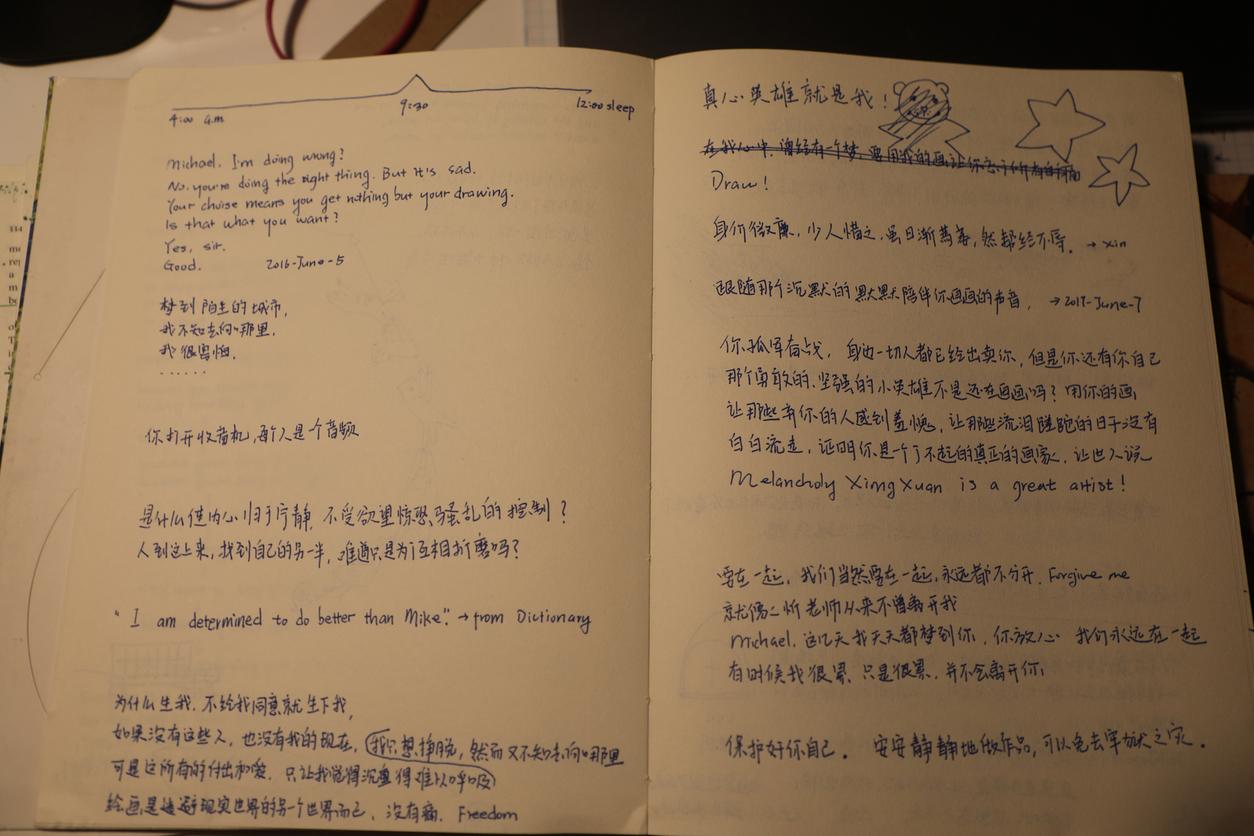 4:00 a.m
9:30
12:00 sleep
Michael. I'm doing wrong?
No. you're doing the right thing. But it's sad.
Your choise means you get nothing but your drawing.
Is that what you want?
Yes, sir.
Good. 2016-June-5
梦到陌生的城市,
我不知去向哪里.
我很害怕.
......
你打开收音机,每个人是个音频
是什么使内心归于宁静,不受欲望惊恐骚乱的控制?
人到这上来,找到自己的另一半,难道只是为了互相折磨吗?
"I am determined to do better than Mike." → from Dictionary
为什么生我.不给我同意就生下我,
如果没有这些人,也没有我的现在,我只想挣脱,然而又不知去向哪里
可是这所有的付出和爱.只让我觉得沉重得难以呼吸
绘画是逃避现实世界的另一个世界而已,没有痛. Freedom
真心英雄就是我!
在我心中,曾经有一个梦,要用我的画让你忘了所有的
Draw!
身价微廉,少人惜之,虽日渐,然都经不得. → xin
跟随那个沉默的默默陪伴你画画的声音, → 2017-June-7
你孤军奋战,身边一切人都已经出卖你,但是你还有你自己
那个勇敢的、坚强的小英雄不是还在画画吗?用你的画,
让那些弃你的人感到羞愧,让那些流泪蹉跎的日子没有
白白流走,证明你是一个了不起的真正的画家.让世人说
Melancholy XingXuan is a great artist!
要在一起,我们当然要在一起,永远都不分开. Forgive me
就像忻老师从来不曾离开我
Michael.这几天我天天都梦到你,你放心 我们永远在一起
有时候我很累.只是很累.并不会离开你
保护好你自己. 安安静静地做作品,可以免去牢狱之灾.